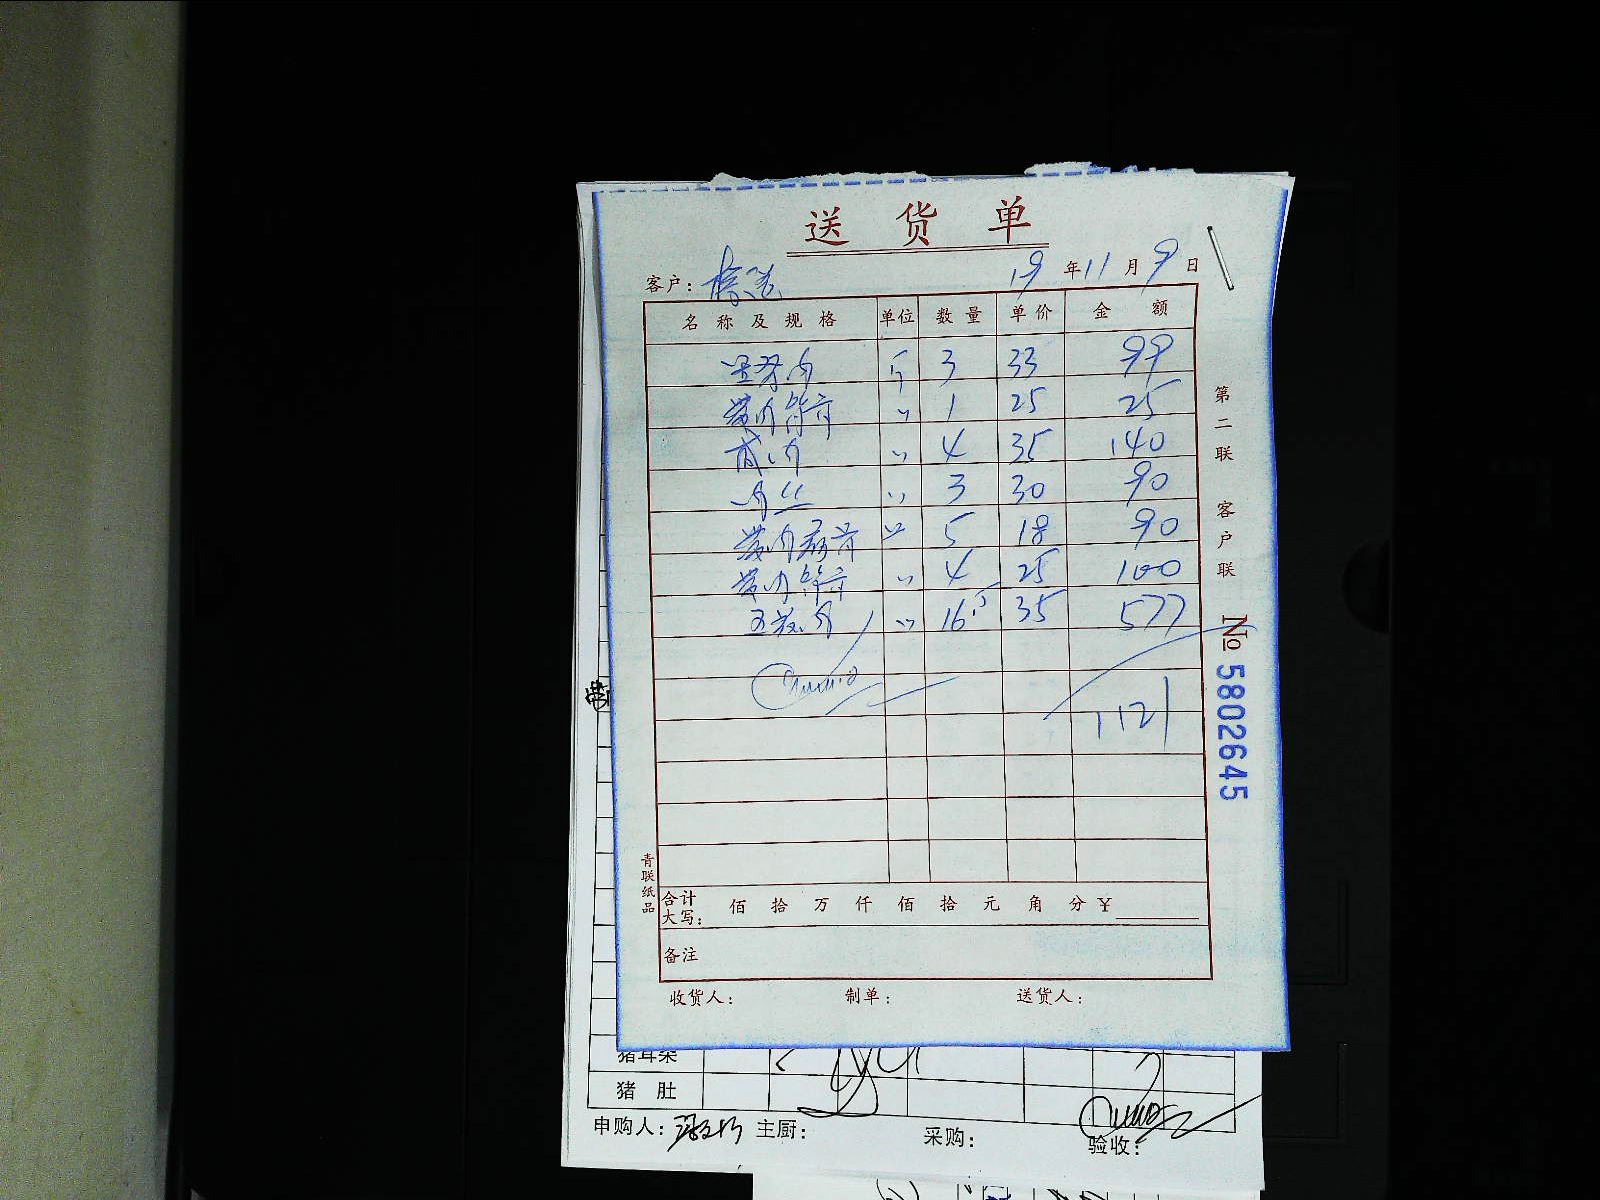 送货单
客户： 19年11月9日
名称及规格 单位 数量 单价 金额
里脊肉 斤 3 33 99
带肉筒骨 〃 1 25 25
肉 〃 4 35 140
肉丝 〃 3 30 90
带肉扇骨 〃 5 18 90
带肉筒骨 〃 4 25 100
五花肉 〃 16.5 35 577
1121
合计大写： 佰拾万仟佰拾元角分￥
备注
收货人： 制单： 送货人：
第二联 客户联
№ 5802645
青联纸品
猪耳朵
猪肚
申购人： 主厨： 采购： 验收：